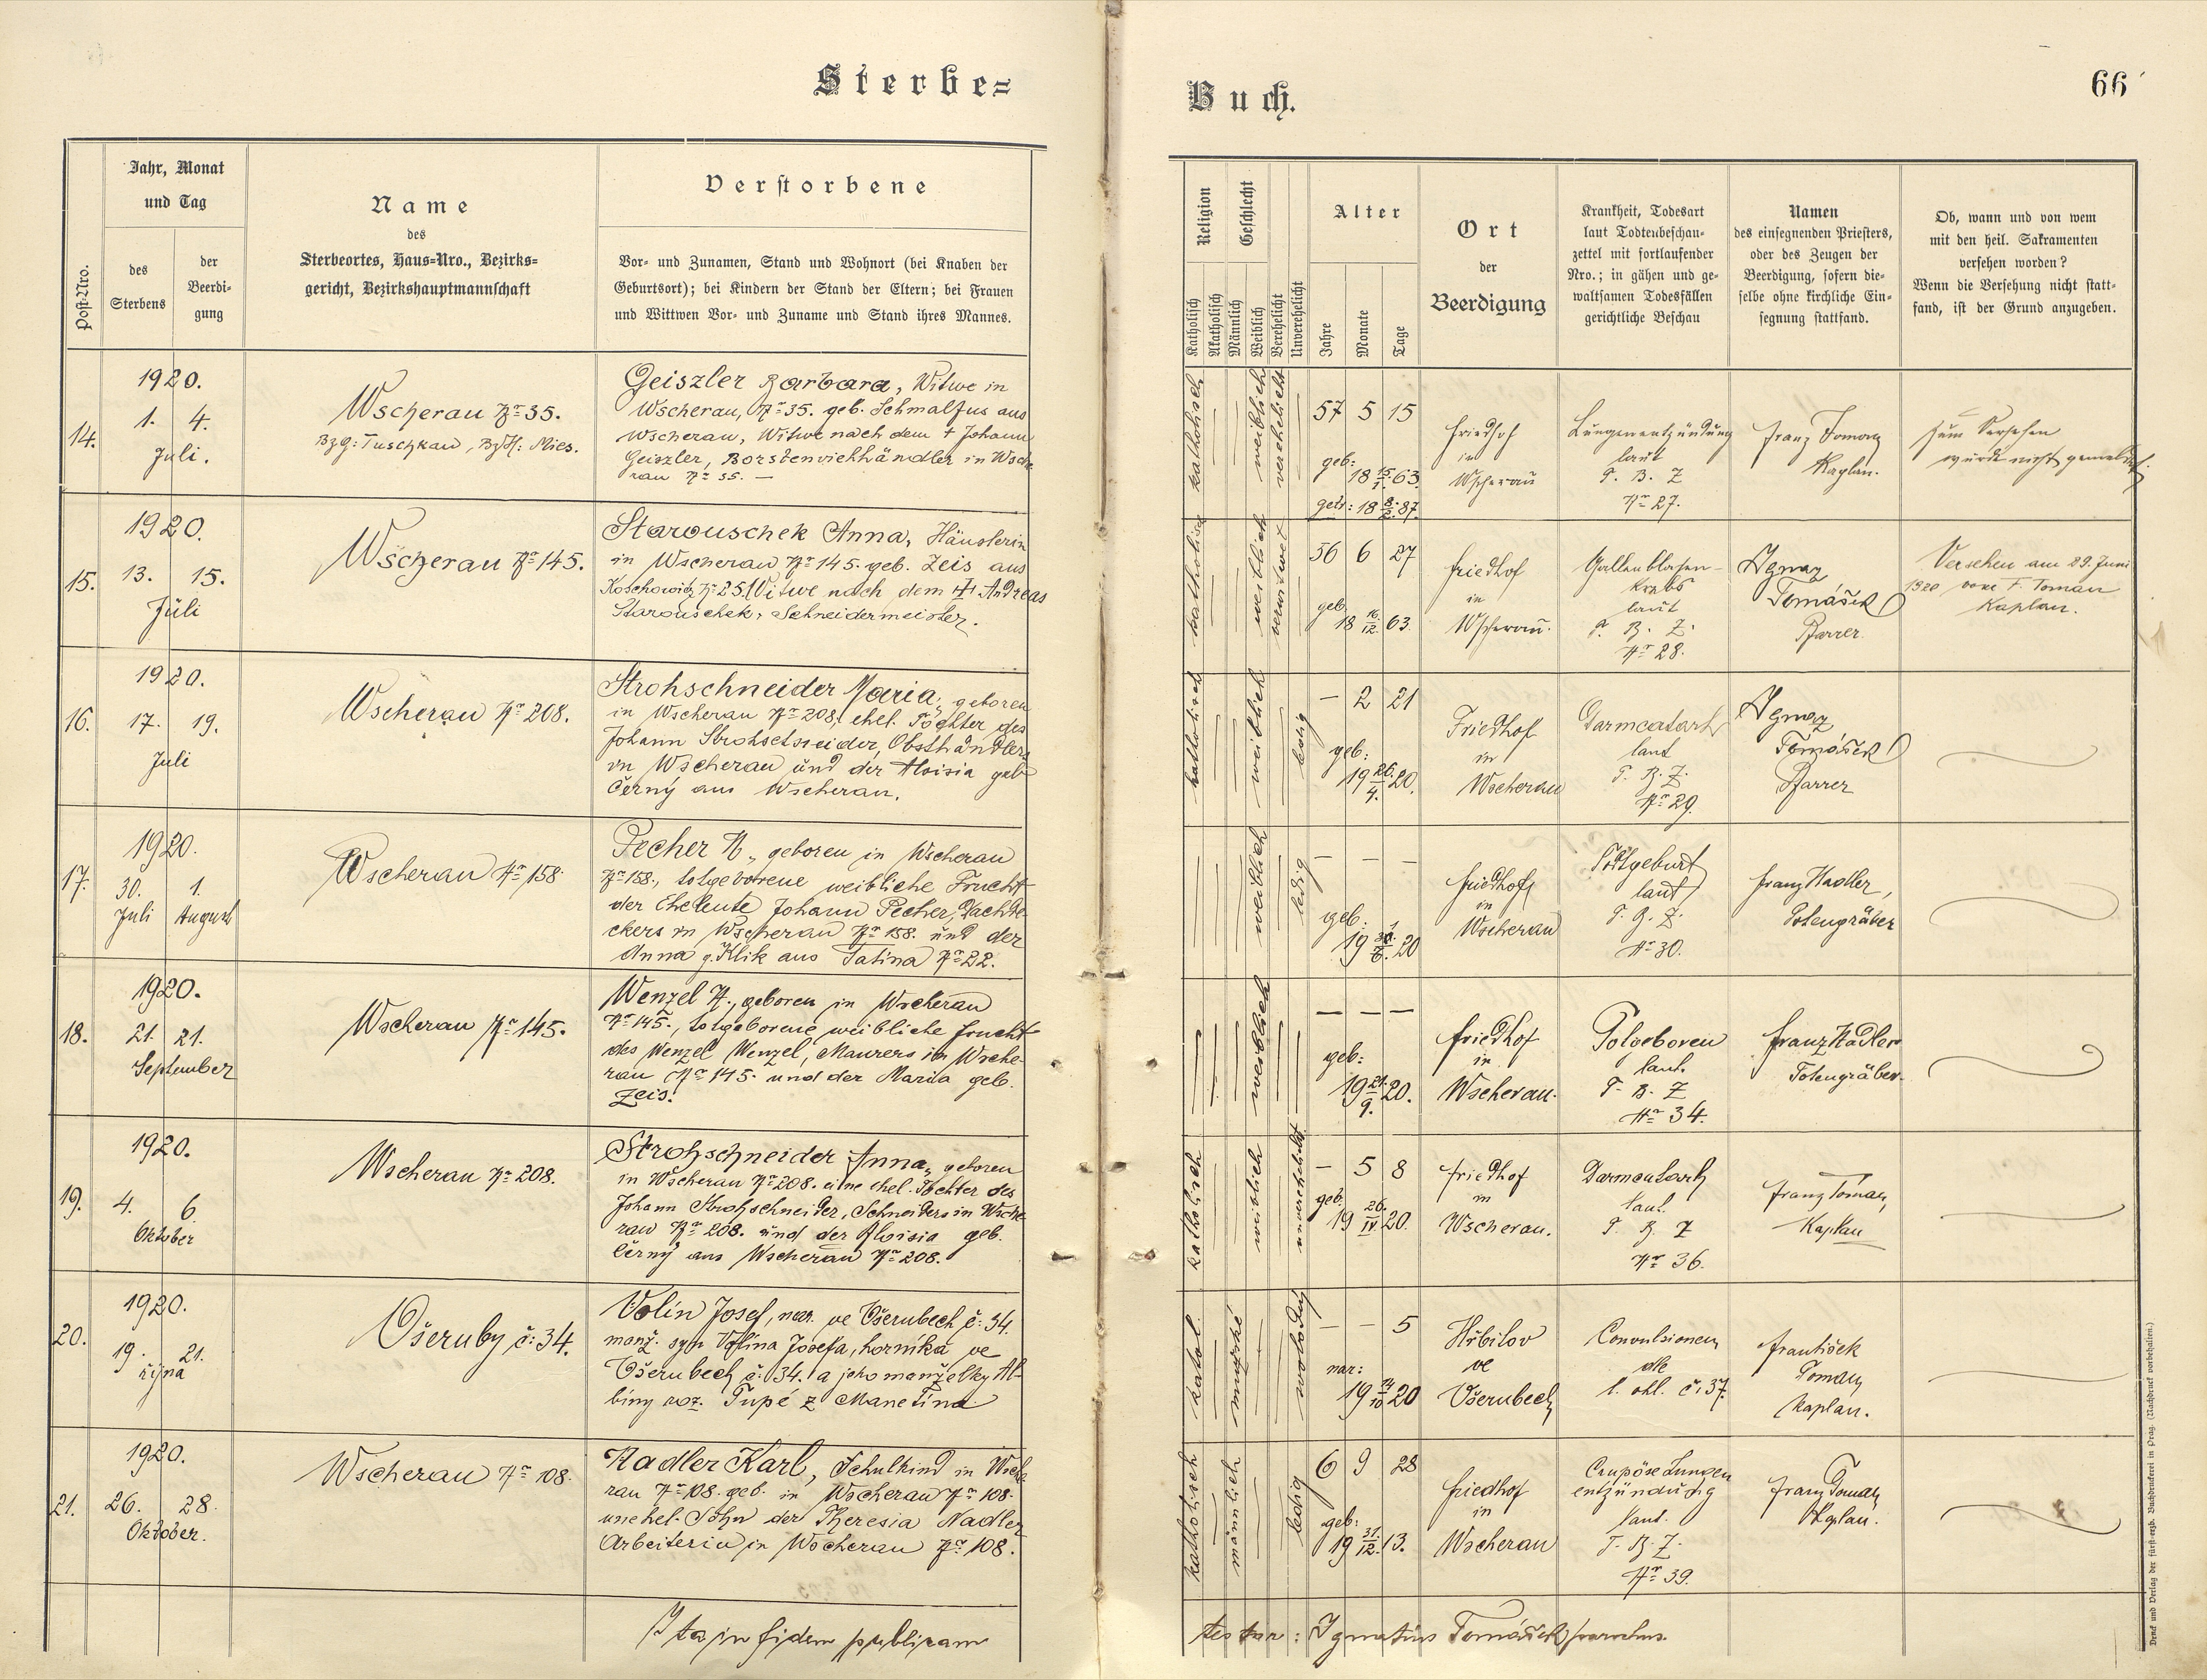 Sterbe=
Buch.
66
Post-Nro.
Jahr, Monat
und Tag
des
Sterbens
der
Beerdi-
gung
Name
des
Sterbeortes, Haus-Nro., Bezirks=
gericht, Bezirkshauptmannschaft
Verstorbene
Vor- und Zunamen, Stand und Wohnort (bei Knaben der
Geburtsort); bei Kindern der Stand der Eltern; bei Frauen
und Wittwen Vor- und Zuname und Stand ihres Mannes.
Religion
Katholisch
Akatholisch
Geschlecht
Männlich
Weiblich
Verehelicht
Unverehelicht
Alter
Jahre
Monate
Tage
Ort
der
Beerdigung
Krankheit, Todesart
laut Todtenbeschau-
zettel mit fortlaufender
Nro.; in gähen und ge-
waltsamen Todesfällen
gerichtliche Beschau
Namen
des einsegnenden Priesters,
oder des Zeugen der
Beerdigung, sofern die-
selbe ohne kirchliche Ein-
segnung stattfand.
Ob, wann und von wem
mit den heil. Sakramenten
versehen worden?
Wenn die Versehung nicht statt-
fand, ist der Grund anzugeben.
14.
1920.
1. 4.
Juli.
Wscherau Nr 35.
BzG: Tuschkau, BzH: Mies.
Geiszler Barbara, Witwe in
Wscherau, Nr 35. geb. Schmalfus aus
Wscherau, Witwe nach dem † Johann
Geiszler, Borstenviehhändler in Wsche
rau Nr 35. —
katholisch
weiblich
verehelicht
57 5 15
geb:
18 15/1. 63.
getr: 18 8/2. 87.
Friedhof
in
Wscherau
Lungenentzündung
laut
T. B. Z
Nr 27.
Franz Toman
Kaplan.
Zum Versehen
wurde nicht gemeldet.
15.
1920.
13. 15.
Juli
Wscherau Nr 145.
Starouschek Anna, Häuslerin
in Wscherau Nr 145. geb. Zeis aus
Koschowitz Nr 25. Witwe nach dem † Andreas
Starouschek, Schneidermeister.
katholisch
weiblich
verwitwet
56 6 27
geb.
18 16/12. 63.
Friedhof
in
Wscherau.
Gallenblasen-
krebs
laut
T. B. Z.
Nr 28.
Ignaz
Tomášek
Pfarrer.
Versehen am 29. Juni
1920 vom F. Toman
Kaplan.
16.
1920.
17. 19.
Juli
Wscherau Nr 208.
Strohschneider Maria, geboren
in Wscherau Nr 208, ehel. Tochter des
Johann Strohschneider, Obsthändlers
in Wscherau und der Aloisia geb
Černý aus Wscherau.
katholisch
weiblich
ledig
— 2 21
geb:
19 26./4. 20.
Friedhof
in
Wscherau
Darmcatarh
laut
T. B. Z.
Nr 29.
Ignaz
Tomášek
Pfarrer
17.
1920.
30. 1.
Juli August
Wscherau Nr 158.
Pecher N., geboren in Wscherau
Nr 158., totgeborene weibliche Frucht
der Eheleute Johann Pecher, Dachde
ckers in Wscherau Nr 158. und der
Anna g. Klik aus Tatina Nr 22.
weiblich
ledig
— — —
geb:
19 20
Friedhof
in
Wscherau
Totgeburt
laut
Nr 30.
Franz Nadler,
Totengräber
18.
1920.
21. 21.
September
Wscherau Nr 145.
Wenzel N., geboren in Wscherau
Nr 145., totgeborene weibliche Frucht
des Wenzel Wenzel, Maurers in Wsche-
rau Nr 145. und der Maria geb.
Zeis.
weiblich
— — —
geb:
19 21./9. 20.
Friedhof
in
Wscherau.
Totgeboren
laut.
T. B. Z
Nr 34.
Franz Nadler
Totengräber.
19.
1920.
4. 6
Oktober
Wscherau Nr 208.
Strohschneider Anna, geboren
in Wscherau Nr 208. eine ehel. Tochter des
Johann Strohschneider, Schneiders in Wsche
rau Nr 208. und der Aloisia geb.
Černý aus Wscherau Nr 208.
katholisch
weiblich
unverehelicht
— 5 8
geb.
19 26./IV. 20.
Friedhof
in
Wscherau.
laut.
T. B. Z
Nr 36.
Franz Toman,
Kaplan
20.
1920.
19. 21.
října
Všeruby č: 34.
Volín Josef, nar. ve Všerubech č: 34.
manž. syn Volína Josefa, horníka ve
Všerubech č: 34. a jeho manželky Al-
bíny roz. Tupé z Manetína
katol.
mužské
svobodný
— — 5
nar:
19 14/10 20
Hřbitov
ve
Všerubech
Convulsionen
dle
l. ohl. č: 37.
František
Toman,
kaplan.
21.
1920.
26. 28.
Oktober.
Wscherau Nr 108.
Nadler Karl, Schulkind in Wsche
rau Nr 108. geb. in Wscherau Nr 108.
unehel. Sohn der Theresia Nadler
Arbeiterin in Wscherau Nr 108.
katholisch
männlich
ledig
6 9 28
geb:
19 31./12. 13.
Friedhof
in
Wscherau
Crupöse Lungen
entzündung
laut.
T. B. Z.
Nr 39.
Franz Toman,
Kaplan.
Ita in fidem publicam
testor: Ignatius Tomášek parochus.
Druck und Verlag der fürst-erzb. Buchdruckerei in Prag. (Nachdruck vorbehalten.)